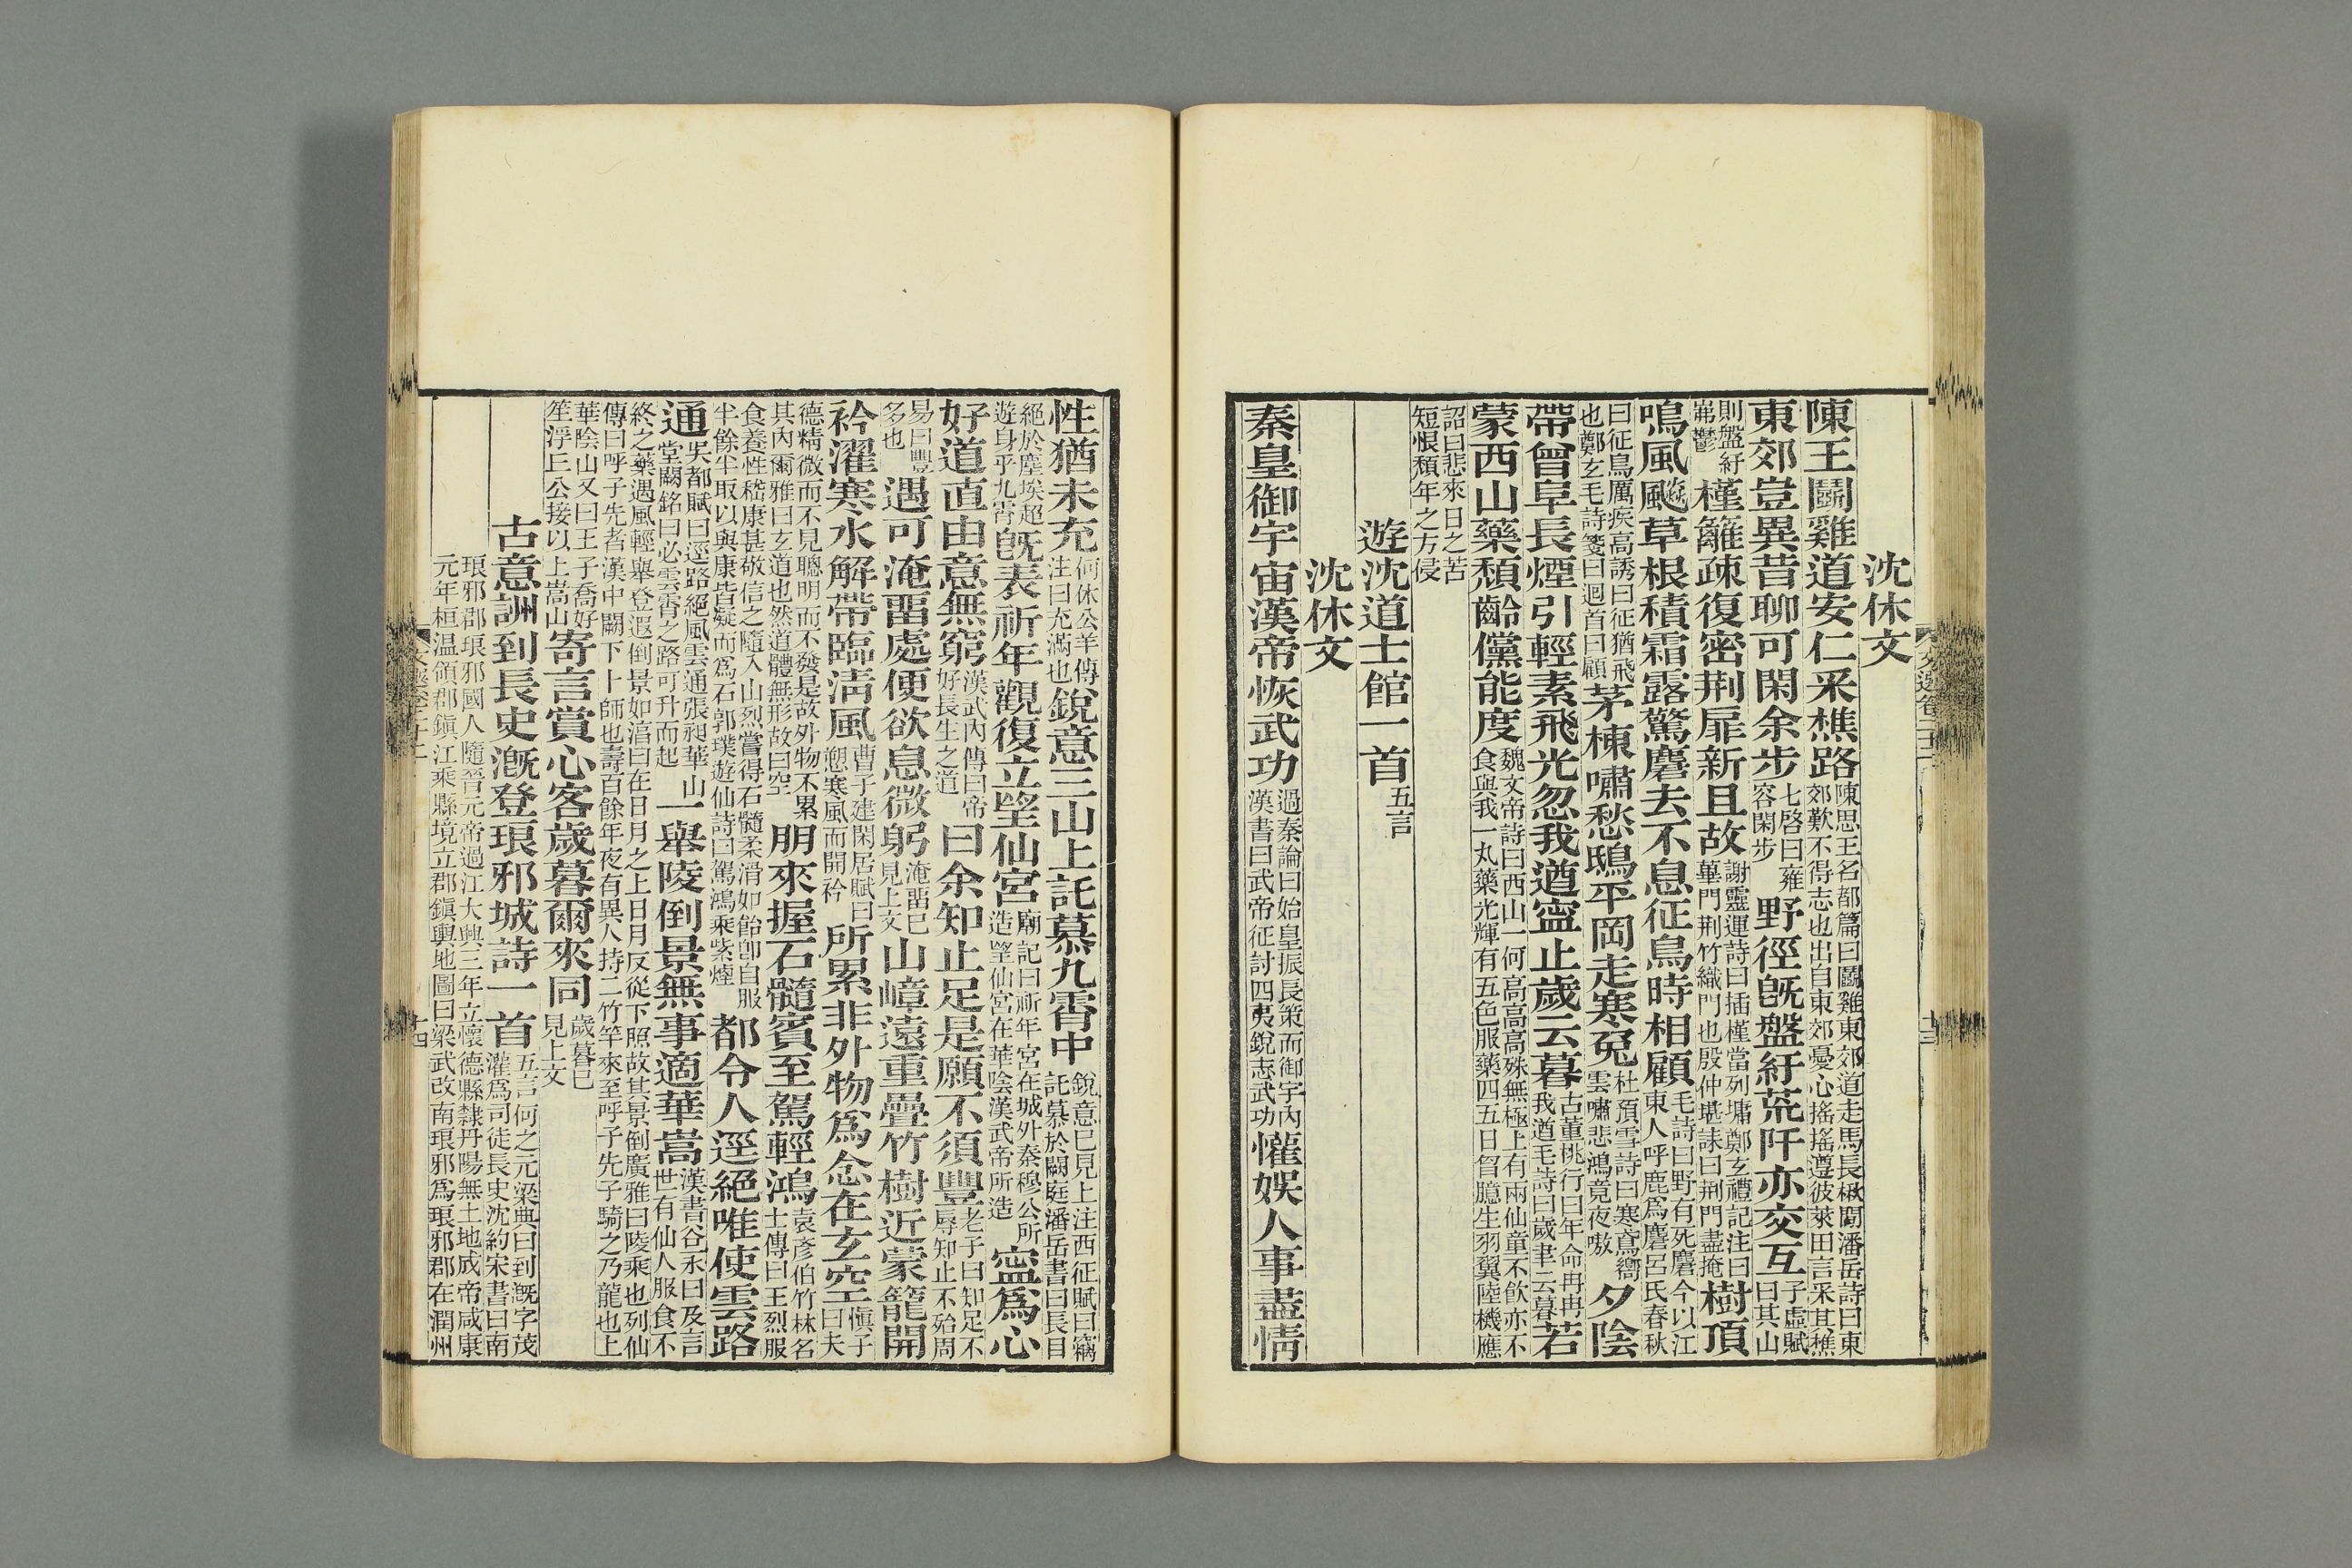 沈休文
陳王鬭雞道安仁采樵路陳思王名都篇曰鬭雞東郊道走馬長楸間潘岳詩曰東郊歎不得志也出自東郊憂心搖搖遵彼萊田言采其樵
東郊豈異昔聊可閑余步七啓曰雍容閑步野徑旣盤紆荒阡亦交互子虛賦曰其山
則盤紆岪鬱槿籬疎復密荆扉新且故謝靈運詩曰插槿當列墉鄭玄禮記注曰蓽門荆竹織門也殷仲堪誄曰荆門盡掩樹頂
鳴風飈草根積霜露驚麏去不息征鳥時相顧毛詩曰野有死麏今以江東人呼鹿爲麏呂氏春秋
曰征鳥厲疾高誘曰征猶飛也鄭玄毛詩箋曰迴首曰顧茅棟嘯愁鴟平岡走寒兔杜預雪詩曰寒鳶嚮雲嘯悲鴻竟夜嗷夕陰
帶曾阜長煙引輕素飛光忽我遒寧止歲云暮古董桃行曰年命冉冉我遒毛詩曰歲聿云暮若
蒙西山藥頹齡儻能度魏文帝詩曰西山一何高高高殊無極上有兩仙童不飲亦不食與我一丸藥光輝有五色服藥四五日胷臆生羽翼陸機應
詔曰悲來日之苦短恨頹年之方侵
遊沈道士館一首五言
沈休文
秦皇御宇宙漢帝恢武功過秦論曰始皇振長策而御宇內漢書曰武帝征討四夷銳志武功懽娛人事盡情
性猶未充何休公羊傳注曰充滿也銳意三山上託慕九霄中銳意已見上注西征賦曰竊託慕於闕庭潘岳書曰長目
絕於塵埃超遊身乎九霄旣表祈年觀復立望仙宮廟記曰祈年宮在城外秦穆公所造望仙宮在華陰漢武帝所造寧爲心
好道直由意無窮漢武內傳曰帝好長生之道曰余知止足是願不須豐老子曰知足不辱知止不殆周
易曰豐多也遇可淹畱處便欲息微躬淹畱已見上文山嶂遠重疊竹樹近蒙籠開
衿濯寒水解帶臨淸風曹子建閑居賦曰愬寒風而開衿所累非外物爲念在玄空愼子曰夫
德精微而不見聰明而不發是故外物不累其內爾雅曰玄道也然道體無形故曰空朋來握石髓賓至駕輕鴻袁彥伯竹林名士傳曰王烈服
食養性嵇康甚敬信之隨入山烈嘗得石髓柔滑如飴卽自服半餘半取以與康皆凝而爲石郭璞遊仙詩曰駕鴻乘紫煙都令人逕絕唯使雲路
通吳都賦曰逕路絕風雲通張昶華山堂闕銘曰必雲霄之路可升而起一舉陵倒景無事適華嵩漢書谷永曰及言世有仙人服食不
終之藥遇風輕舉登遐倒景如淳曰在日月之上日月反從下照故其景倒廣雅曰陵乘也列仙傳曰呼子先者漢中闕下卜師也壽百餘年夜有異人持二竹竿來至呼子先子騎之乃龍也上
華陰山又曰王子喬好笙浮丘公接以上嵩山寄言賞心客歲暮爾來同歲暮已見上文
古意詶到長史漑登琅邪城詩一首五言何之元梁典曰到漑字茂灌爲司徒長史沈約宋書曰南
琅邪郡琅邪國人隨晉元帝過江大興三年立懷德縣隸丹陽無土地成帝咸康元年桓温領郡鎭江乘縣境立郡鎭輿地圖曰梁武改南琅邪爲琅邪郡在潤州
十四